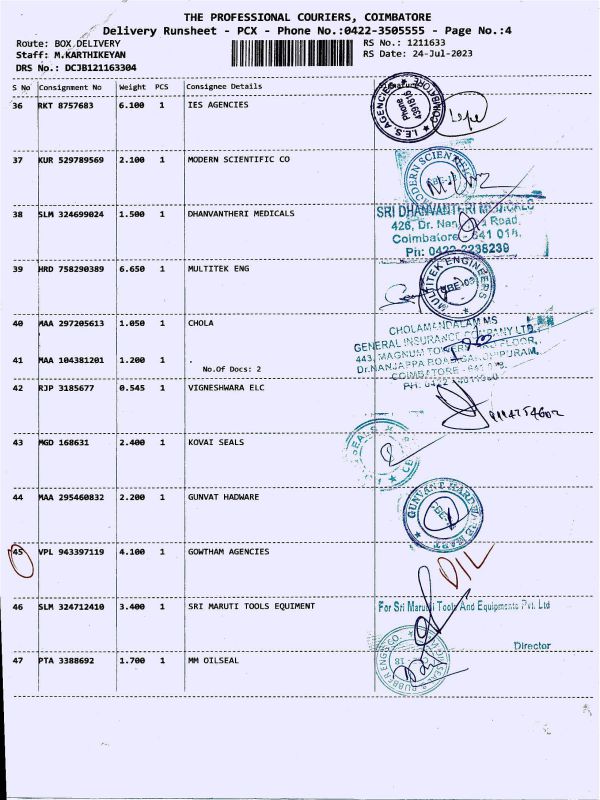 THE PROFESSIONAL COURIERS, COIMBATORE
Delivery Runsheet - PCX - Phone No.:0422-3505555 - Page No.:4
Route: BOX DELIVERY
RS No.: 1211633
Staff: M.KARTHIKEYAN
RS Date: 24-Jul-2023
DRS No.: DCJB121163304
S No Consignment No Weight PCS Consignee Details
36 RKT 8757683 6.100 1 IES AGENCIES
I.E.S. AGENCIES COIMBATORE Phone 4391816
37 KUR 529789569 2.100 1 MODERN SCIENTIFIC CO
MODERN SCIENTIFIC
38 SLM 324699024 1.500 1 DHANVANTHERI MEDICALS
SRI DHANVANTHRI MEDICALS
426, Dr. Road,
Coimbatore - 641 018.
Ph: 0422-2238239
39 HRD 758290389 6.650 1 MULTITEK ENG
MULTITEK ENGINEERS
40 MAA 297205613 1.050 1 CHOLA
CHOLAMANDALAM MS
GENERAL INSURANCE COMPANY LTD.
41 MAA 104381201 1.200 1 .
No.Of Docs: 2
443, MAGNUM FLOOR,
Dr.NANJAPPA ROAD,
COIMBATORE - 641
PH: 0422
42 RJP 3185677 0.545 1 VIGNESHWARA ELC
43 MGD 168631 2.400 1 KOVAI SEALS
SEALS
44 MAA 295460832 2.200 1 GUNVAT HADWARE
GUNVANT HARDWARE MART
45 VPL 943397119 4.100 1 GOWTHAM AGENCIES
D/L
46 SLM 324712410 3.400 1 SRI MARUTI TOOLS EQUIMENT
For Sri Maruti Tools And Equipments Pvt. Ltd
Director
47 PTA 3388692 1.700 1 MM OILSEAL
RUBBER ENGG CO.